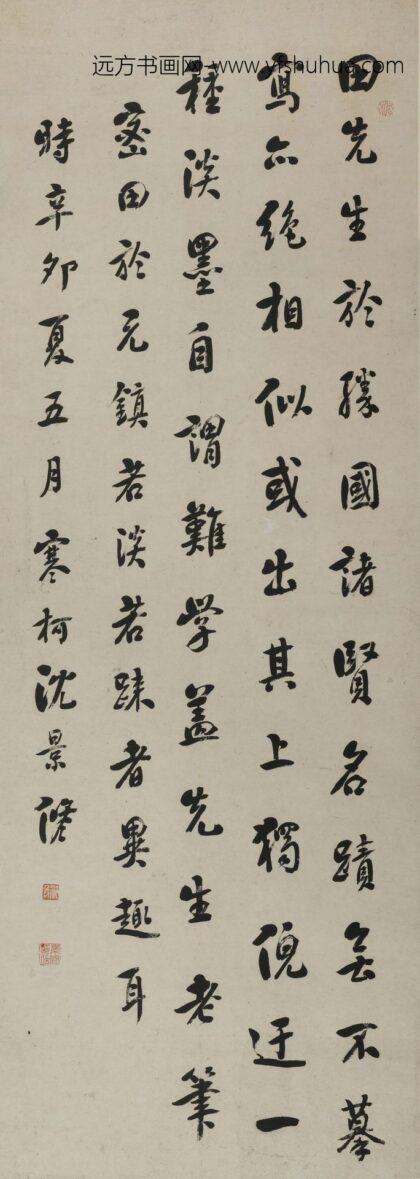 远方书画网-www.yfshuhua.com
田先生於勝國諸賢名蹟無不摹
寫亦絕相似或出其上獨倪迂一
種淡墨自謂難学蓋先生老筆
密田於元鎮若淡若疎者異趣耳
時辛卯夏五月寒柯沈景脩